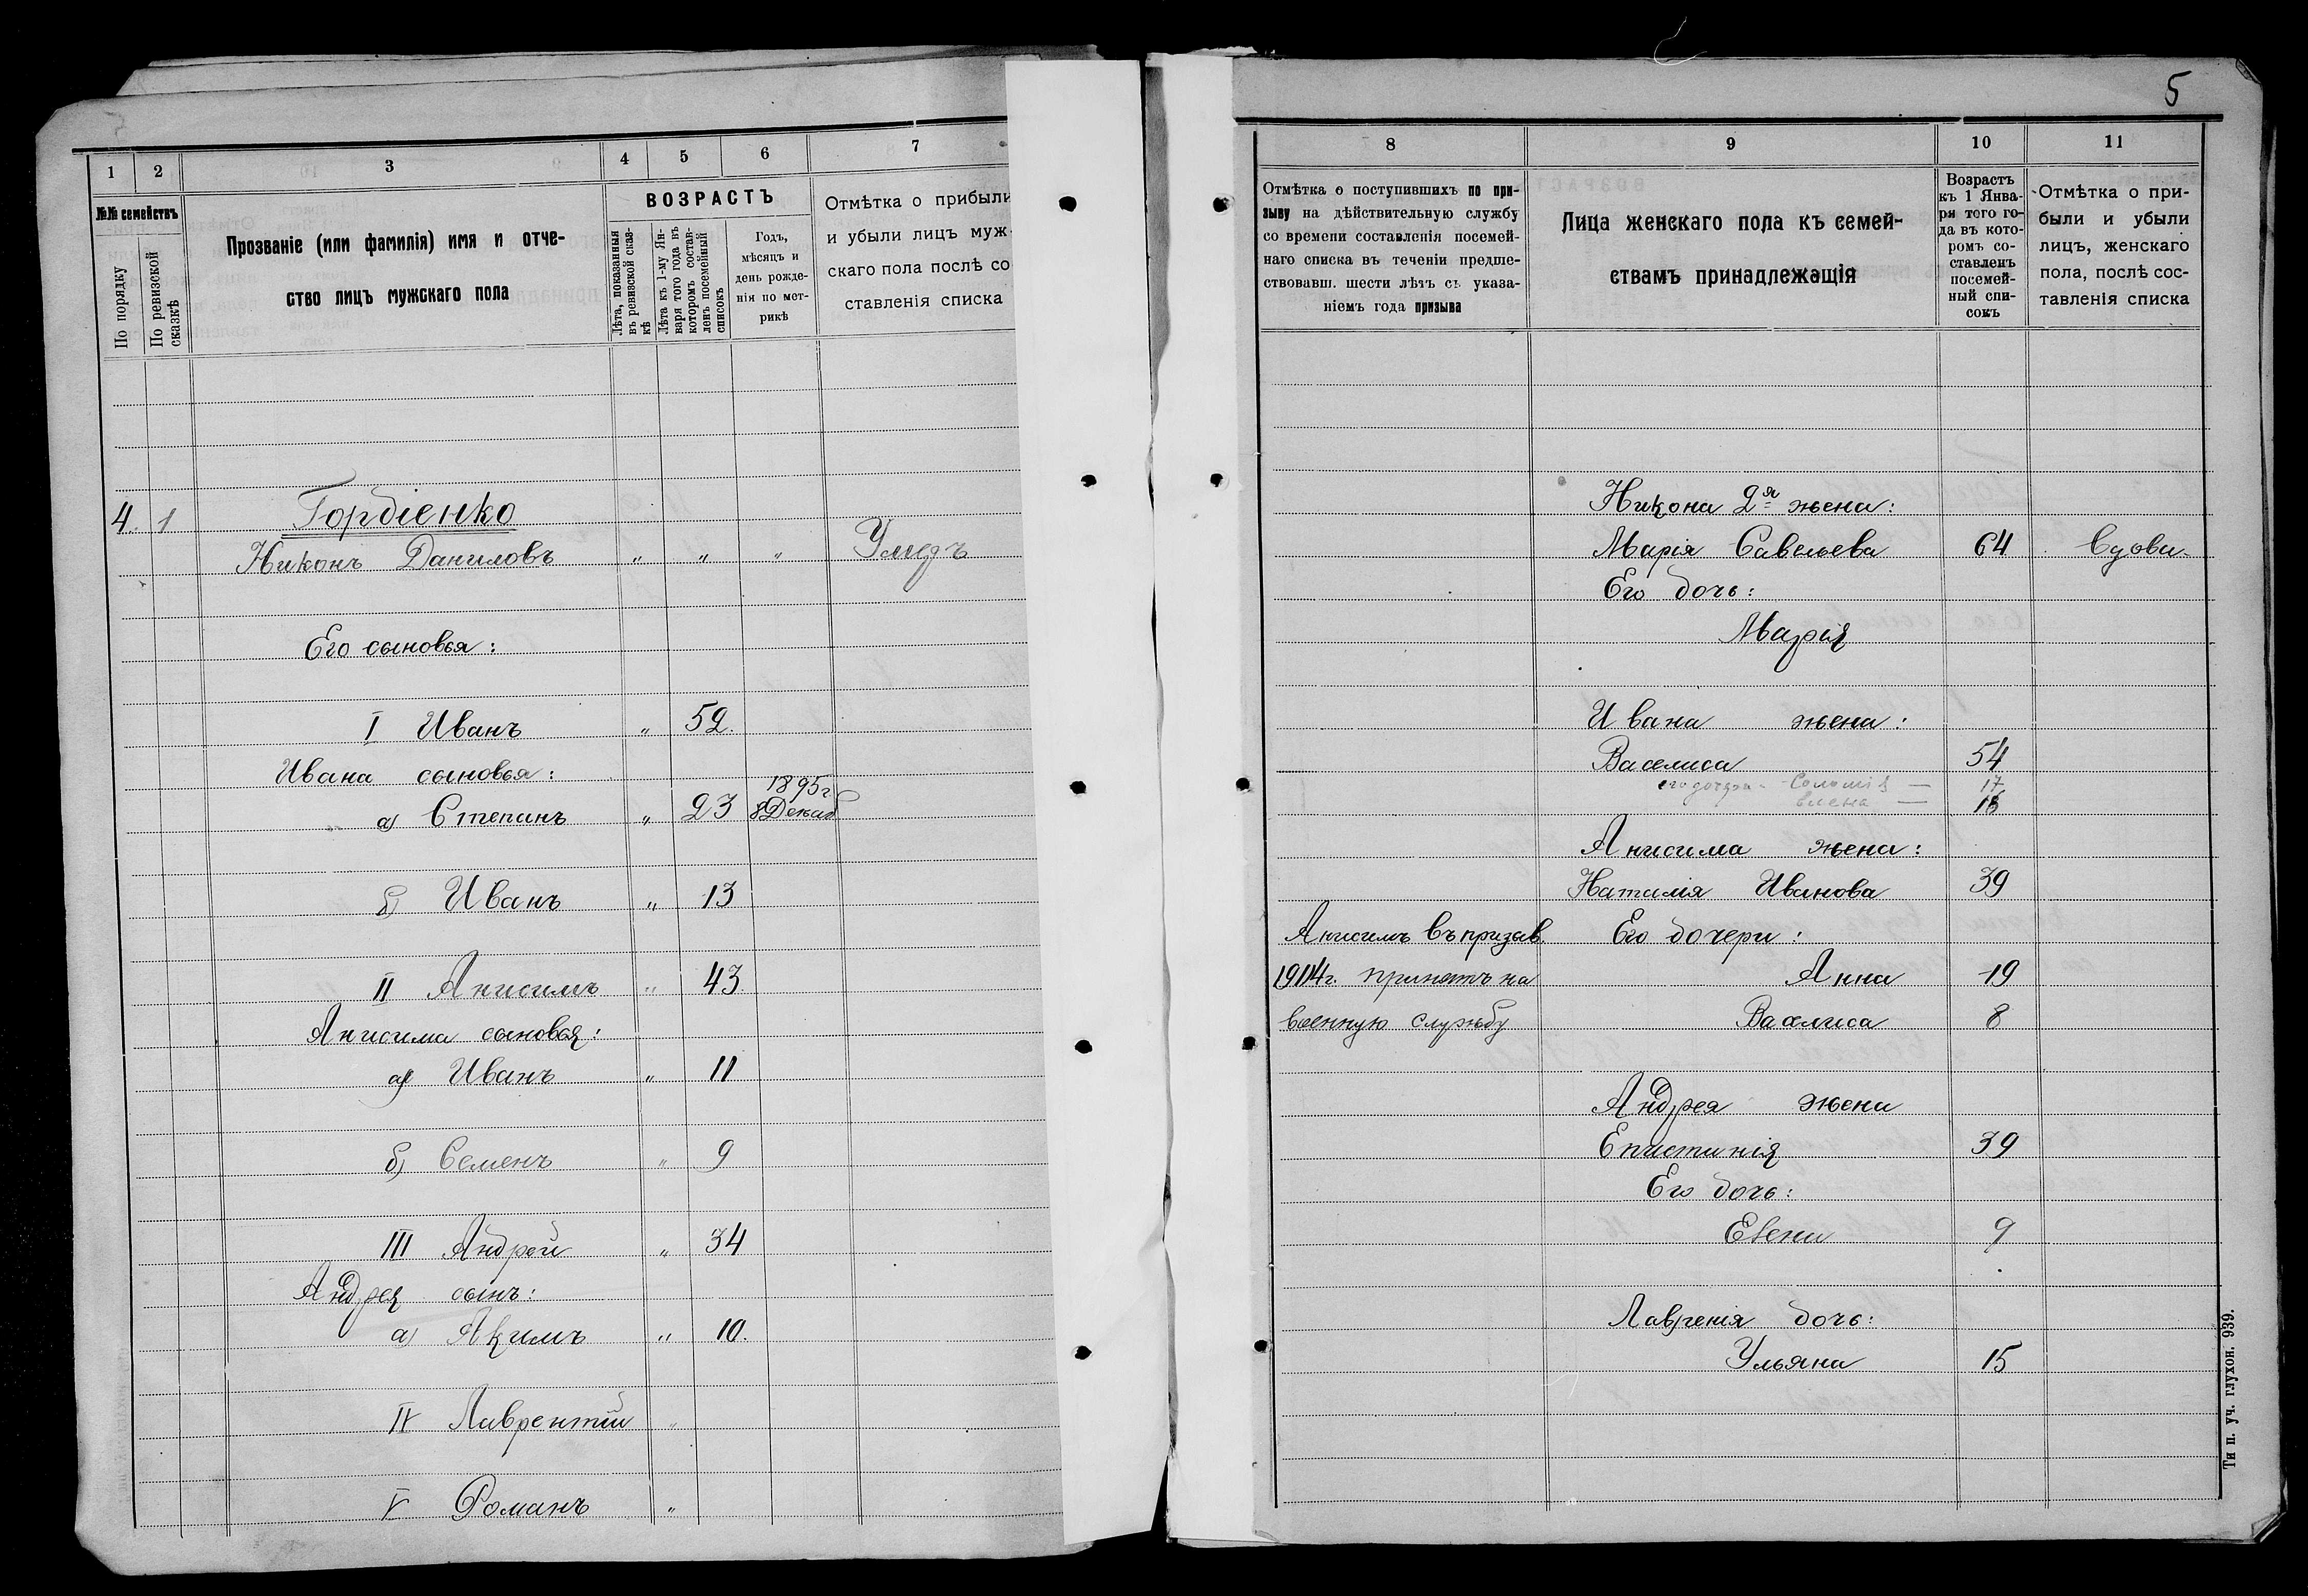 5
1 2 3 4 5 6 7
№№ семействъ
По порядку
По ревизской сказкѣ
Прозваніе (или фамилія) имя и отче-
ство лицъ мужскаго пола
ВОЗРАСТЪ
Лѣта, показанныя
въ ревизской сказ-
кѣ
Лѣта къ 1-му Ян-
варя того года въ
которомъ состав-
ленъ посемейный
списокъ
Годъ,
мѣсяцъ и
день рожде-
нія по мет-
рикѣ
Отмѣтка о прибыли
и убыли лицъ муж-
скаго пола послѣ со
ставленія списка
4. 1 Гордіенко
Никонъ Даниловъ " " " Умеръ
Его сыновья:
I Иванъ " 52.
Ивана сыновья:
1895г
а) Степанъ " 23 8 Декаб
б) Иванъ " 13
II Анисимъ " 43.
Анисима сыновья:
а) Иванъ " 11
б) Семенъ " 9
III Андрей " 34
Андрея сынъ:
а) Акимъ " 10.
IV Лаврентій "
V Романъ "
8 9 10 11
Отмѣтка о поступившихъ по при-
зыву на дѣйствительную службу
со времени составленія посемей-
наго списка въ теченіи предше-
ствовавш. шести лѣтъ съ указа-
ніемъ года призыва
Лица женскаго пола къ семей-
ствамъ принадлежащія
Возрастъ
къ 1 Янва-
ря того го-
да въ кото-
ромъ со-
ставленъ
посемей-
ный спи-
сокъ
Отмѣтка о при-
были и убыли
лицъ, женскаго
пола, послѣ сос-
тавленія списка
Никона 2я жена:
Марія Савельева 64 Вдова
Его дочь:
Марія
Ивана жена:
Васелиса 54
его дочери - Соломія — 17
Елена — 13
Анисима жена:
Наталія Иванова 39
Анисимъ въ призыв. Его дочери:
1914г. принятъ на Анна 19
военную службу Васелиса 8
Андрея жена
Епистинія 39
Его дочь:
Евгени 9
Лаврентія дочь:
Ульяна 15
Ти п. уч. глухон. 939.